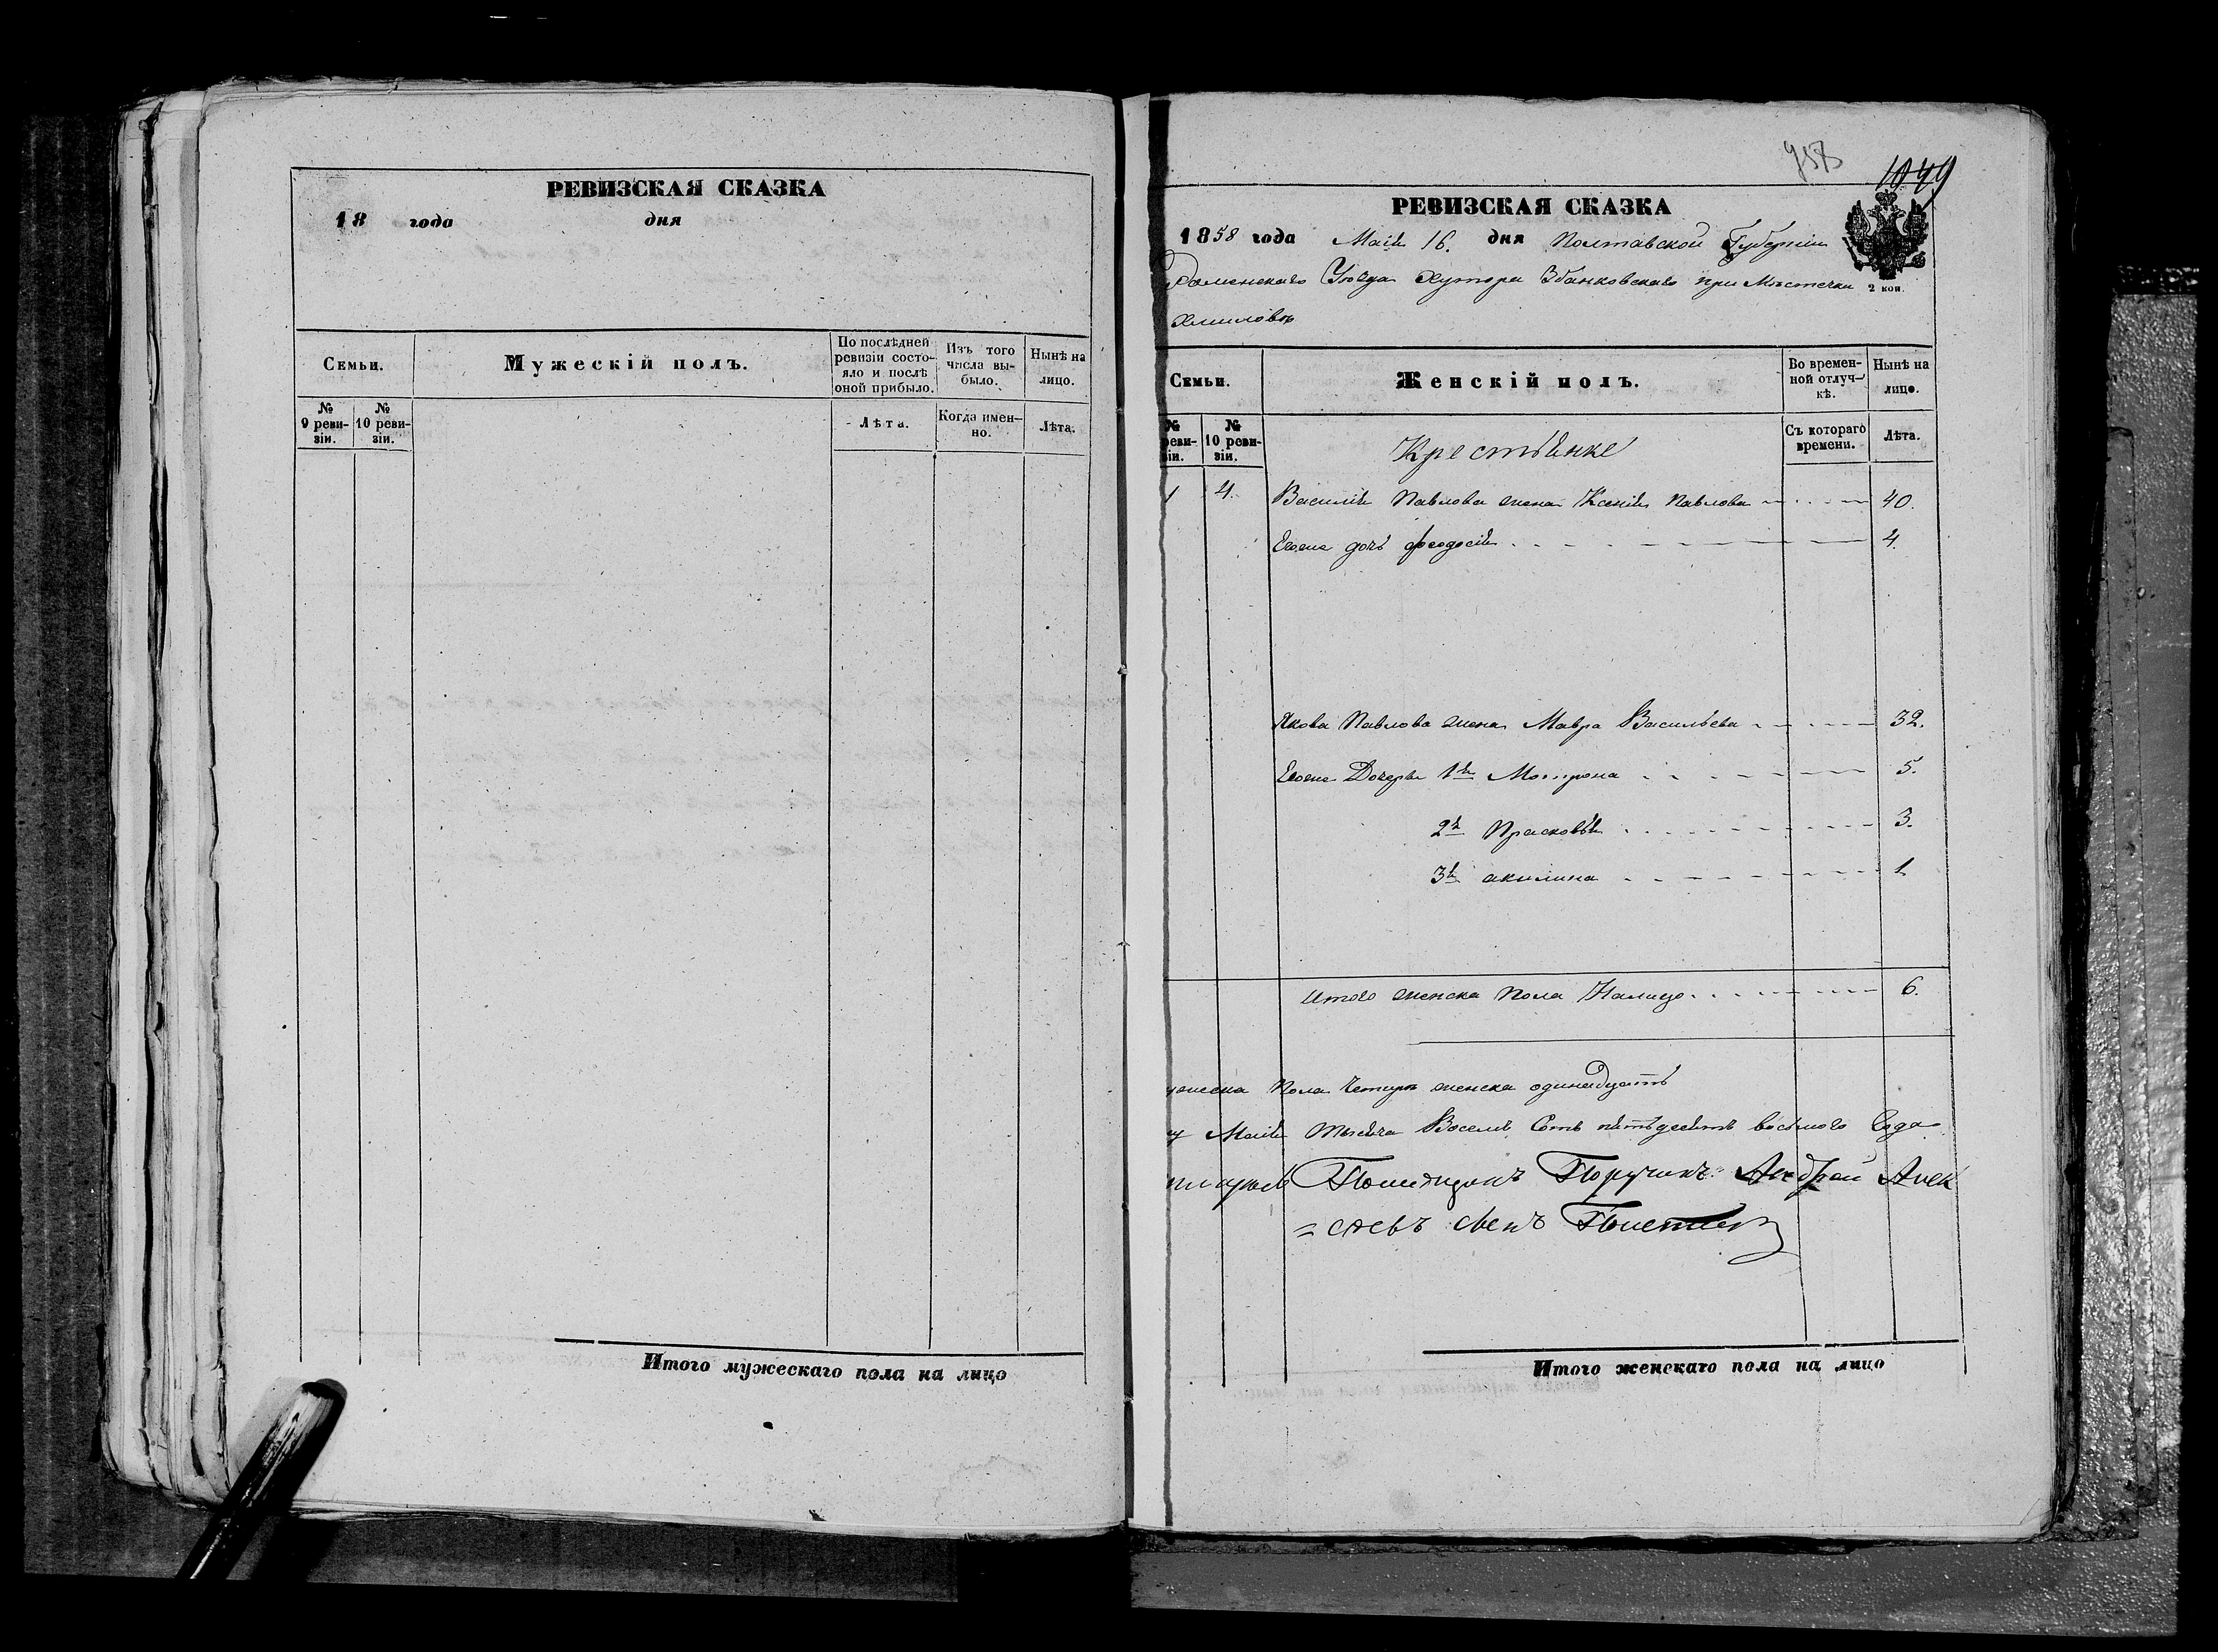 РЕВИЗСКАЯ СКАЗКА
18 года дня
Семьи.
Мужескій полъ.
По послѣдней ревизіи состояло и послѣ оной прибыло.
Изъ того числа выбыло.
Нынѣ на лицо.
№ 9 ревизіи.
№ 10 ревизіи.
Лѣта.
Когда именно.
Лѣта.
Итого мужескаго пола на лицо
958
1049
РЕВИЗСКАЯ СКАЗКА
1858 года Маія 16. дня Полтавской Губерніи
Роменскаго Уѣзда Хутора Збанковскаго при Мѣстечки
2 коп.
Хмиловѣ
Семьи.
Женскій полъ.
Во временной отлучкѣ.
Нынѣ на лицо.
№ реви-зіи.
№ 10 реви-зіи.
Съ котораго времени.
Лѣта.
Крестьянке
1 4. Василія Павлова жена Ксенія Павлова 40.
Егоже дочь Феодосія 4.
Якова Павлова жена Мавра Васильева 32.
Егоже Дочери 1я Мотрона 5.
2я Прасковѣя 3.
3я акилина 1.
Итого женска пола Налицо 6.
пола Четыри женска одинадцать
Маія тысяча Восемъ Сотъ пятьдесятъ восьмого Года
Помещикъ Поручикъ Андрей Алек
=сеевъ сынъ
Итого женскаго пола на лицо